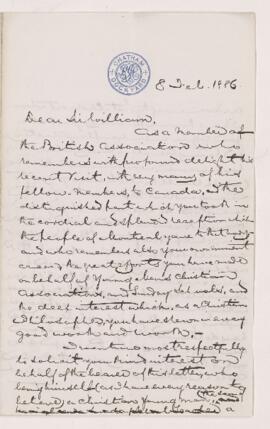 CHATHAM
DOCKYARD
8 Feb. 1886
Dear Sir William,
As a Member of
the British Association who
remembers with profound delight his
recent visit, with very many of his
fellow-Members, to Canada, and the
distinguished part which you took in
the cordial and splendid reception which
the people of Montreal gave to that body
and who remembers also your own eminent
career, the great efforts you have made
on behalf of Young Men's Christian
Associations, and Sunday Schools, and
the deep interest which, as a Christian
Philosopher, you have shown in every
good word and work,
I venture most respectfully
to solicit your kind interest on
behalf of the bearer of this letter, who
being himself (as I have every reason to
believe) a Christian Young Man,
a